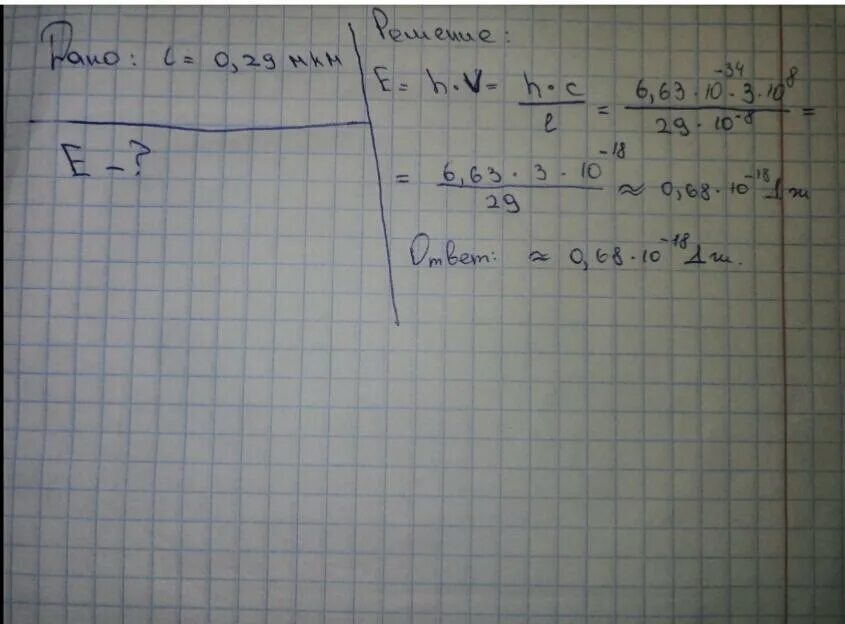 Дано: l = 0,29 мкм
E - ?
Решение:
E = h·V = h·c / l = 6,63·10^-34·3·10^8 / 29·10^-8 =
= 6,63·3·10^-18 / 29 ≈ 0,68·10^-18 Дж
Ответ: ≈ 0,68·10^-18 Дж.